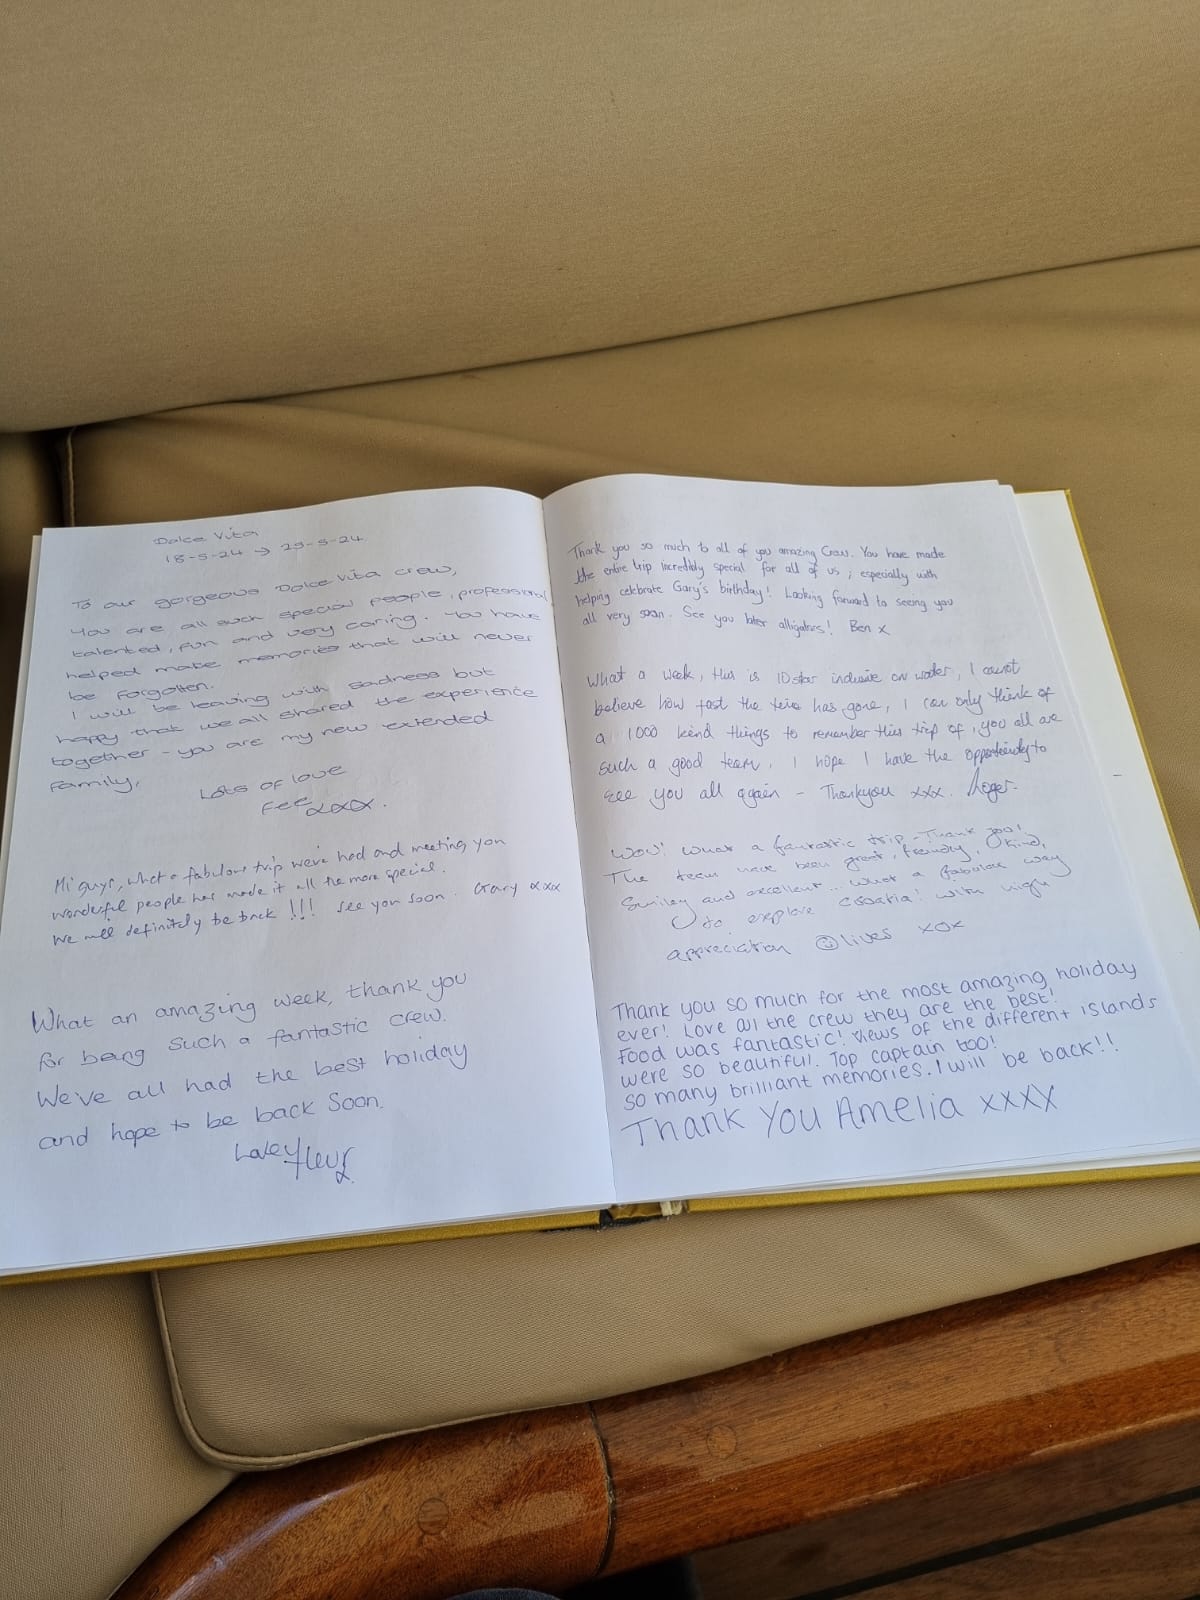 Dolce Vita
18-5-24 → 25-5-24
To our gorgeous Dolce Vita crew,
You are all such special people, professional
talented, fun and very caring. You have
helped make memories that will never
be forgotten.
I will be leaving with sadness but
happy that we all shared the experience
together - you are my new extended
family,
Lots of love
Fee xxx.
Hi guys, what a fabulous trip we've had and meeting you
wonderful people has made it all the more special.
We will definitely be back !!! See you soon. Gary xxx
What an amazing week, thank you
for being such a fantastic crew.
We've all had the best holiday
and hope to be back soon.
Love Fleur x
Thank you so much to all of you amazing Crew. You have made
the entire trip incredibly special for all of us, especially with
helping celebrate Gary's birthday! Looking forward to seeing you
all very soon. See you later alligators! Ben x
What a week, this is 10 star on water, I cannot
believe how fast the time has gone, I can only think of
a 1000 kind things to remember this trip of, you all are
such a good team. I hope I have the opportunity to
see you all again - Thankyou xxx. Roger.
Wow! What a fantastic trip - Thank you!
The team have been great, friendly, kind,
Smiley and excellent... what a fabulous way
to explore Croatia! With high
appreciation Olives xox
Thank you so much for the most amazing holiday
ever! Love all the crew they are the best!
Food was fantastic! Views of the different islands
were so beautiful. Top captain too!
So many brilliant memories. I will be back!!
Thank You Amelia xxxx